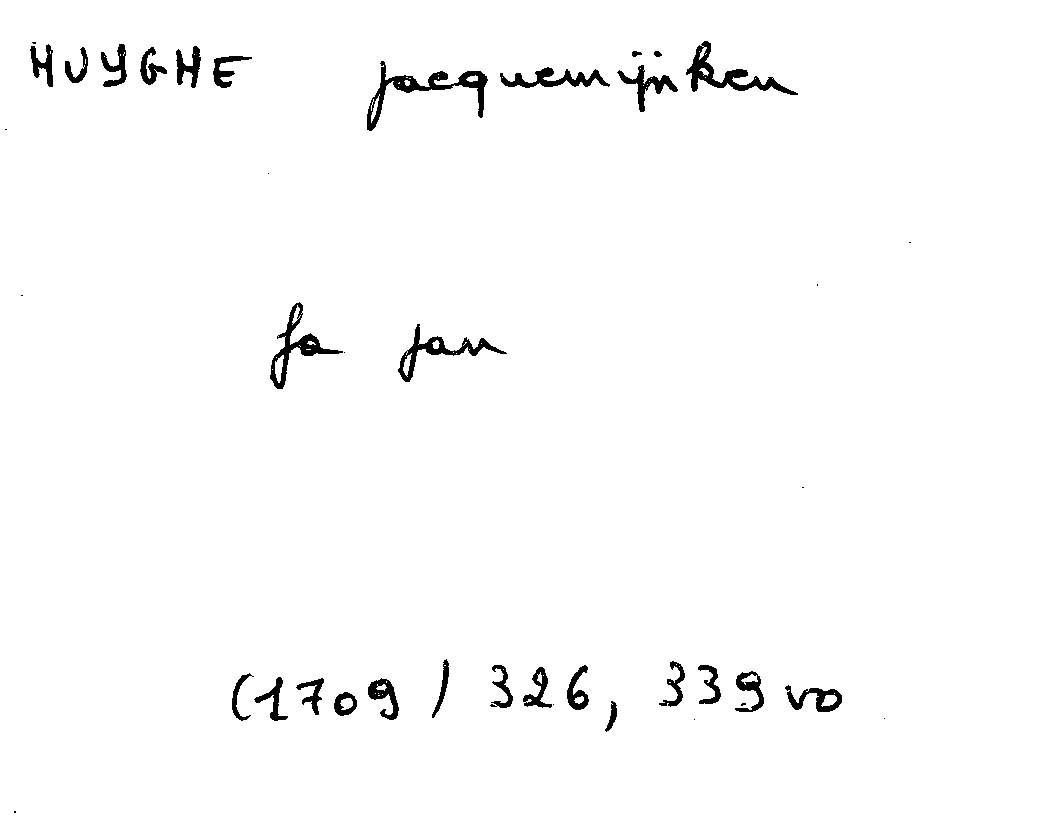 HUYGHE jacquemijnken
fa jan
(1709) 326, 339 vo